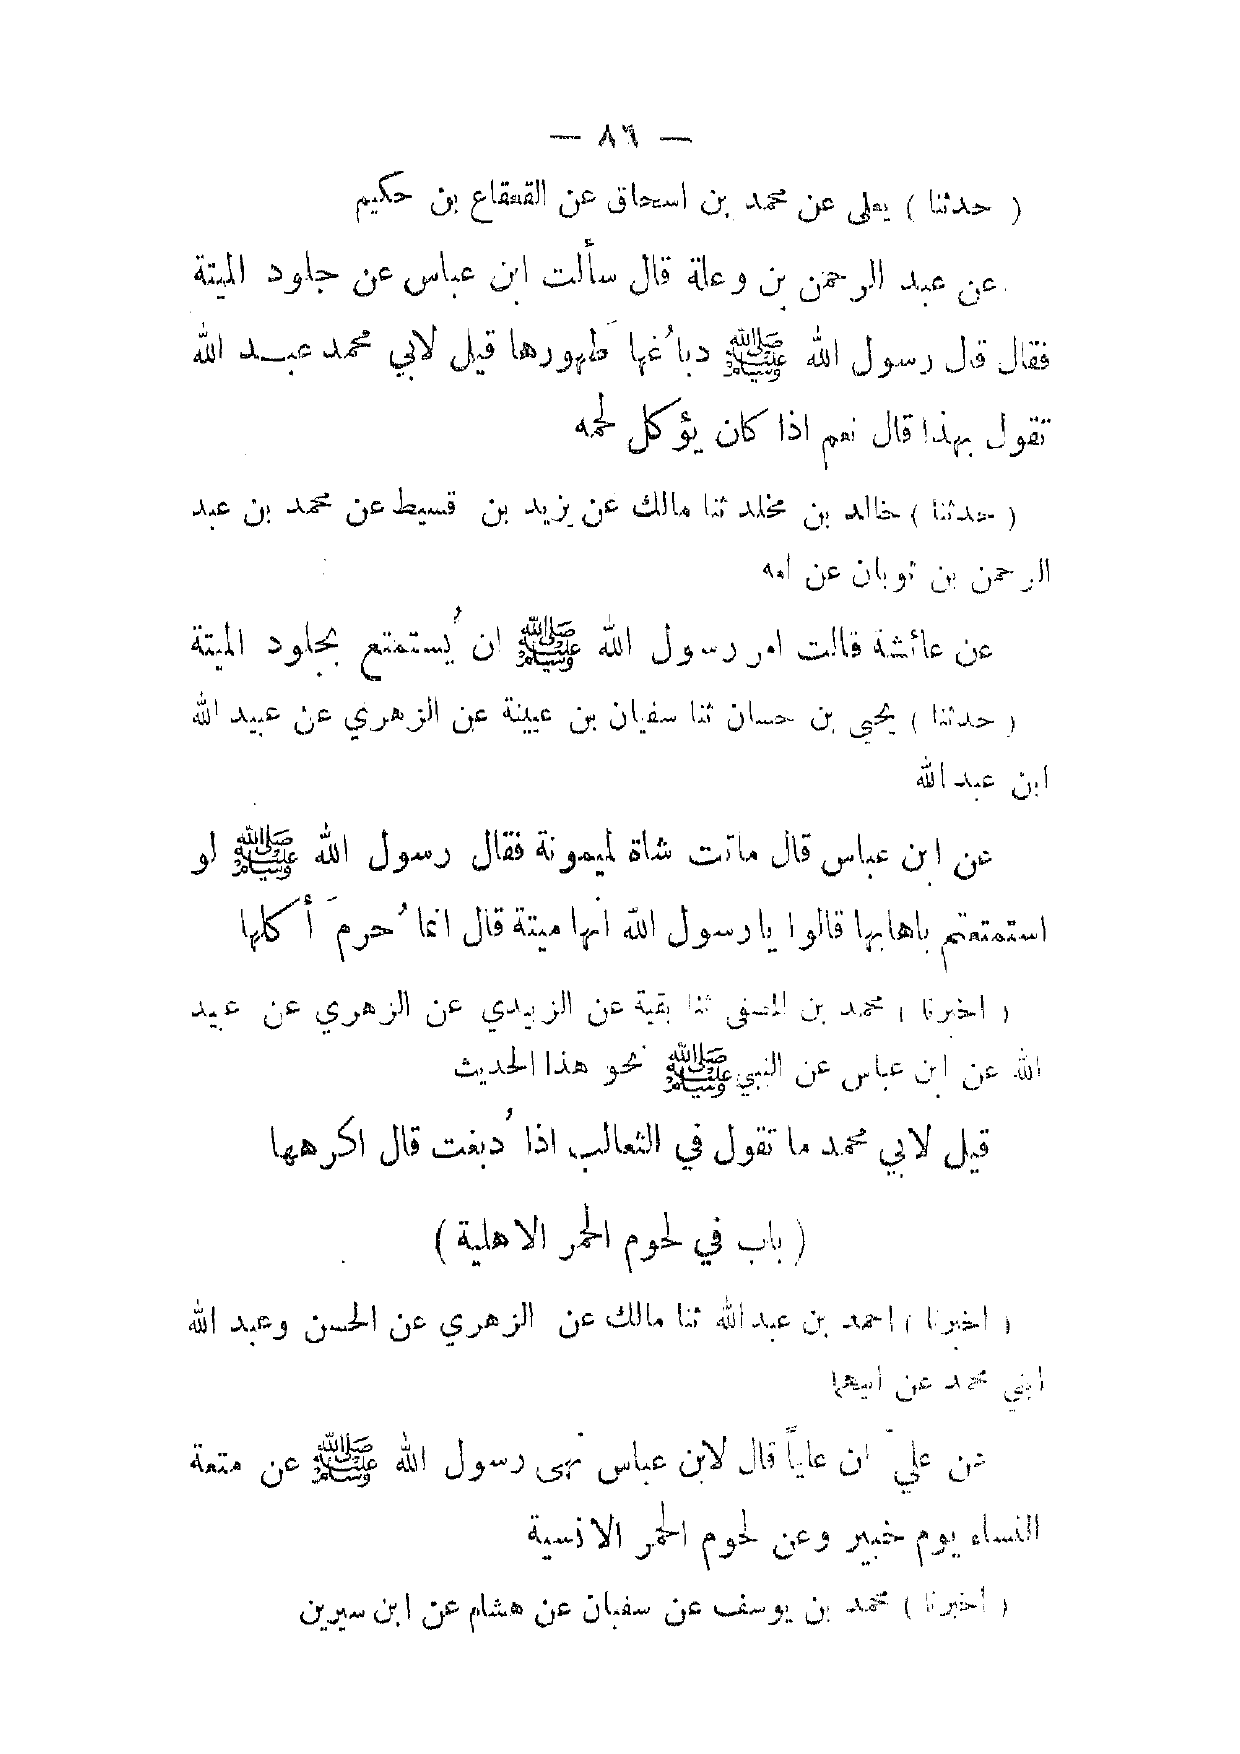 — ٨٦ —
( حدثنا ) يعلى عن محمد بن اسحاق عن القعقاع بن حكيم
عن عبد الرحمن بن وعلة قال سألت ابن عباس عن جلود الميتة
فقال قال رسول الله ﷺ دباُغها طَهورها قيل لابي محمد عبد الله
تقول بهذا قال نعم اذا كان يؤكل لحمه
( حدثنا ) خالد بن مخلد ثنا مالك عن يزيد بن قسيط عن محمد بن عبد
الرحمن بن ثوبان عن امه
عن عائشة قالت امر رسول الله ﷺ ان يُستمتع بجلود الميتة
( حدثنا ) يحيى بن حسان ثنا سفيان بن عيينة عن الزهري عن عبيد الله
ابن عبد الله
عن ابن عباس قال ماتت شاة لميمونة فقال رسول الله ﷺ لو
استمتعتم باهابها قالوا يا رسول الله انها ميتة قال انما حُرمَ أكلها
( اخبرنا ) محمد بن المصفى ثنا بقية عن الزبيدي عن الزهري عن عبيد
الله عن ابن عباس عن النبي ﷺ نحو هذا الحديث
قيل لابي محمد ما تقول في الثعالب اذا دُبغت قال اكرهها
( باب في لحوم الحمر الاهلية )
( اخبرنا ) احمد بن عبد الله ثنا مالك عن الزهري عن الحسن وعبد الله
ابني محمد عن ابيهما
عن عليّ ان علياً قال لابن عباس نهى رسول الله ﷺ عن متعة
النساء يوم خيبر وعن لحوم الحمر الانسية
( اخبرنا ) محمد بن يوسف عن سفيان عن هشام عن ابن سيرين